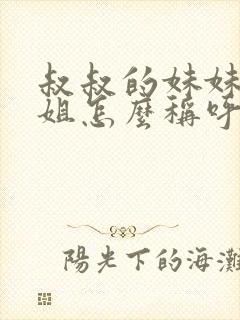 叔叔的妹妹
姐怎麼稱呼
陽光下的海灘